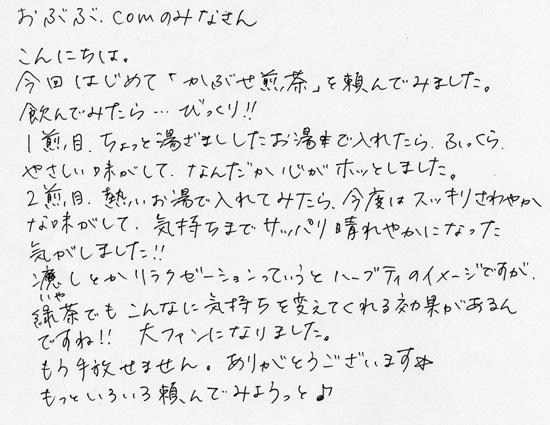 おぶぶ.comのみなさん
こんにちは。
今回はじめて「かぶせ煎茶」を頼んでみました。
飲んでみたら…びっくり!!
1煎目、ちょっと湯ざまししたお湯で入れたら、ふっくら、
やさしい味がして、なんだか心がホッとしました。
2煎目、熱いお湯で入れてみたら、今度はスッキリさわやか
な味がして、気持ちまでサッパリ晴れやかになった
気がしました!!
癒しとかリラクゼーションっていうとハーブティのイメージですが、
いや
緑茶でもこんなに気持ちを変えてくれる効果があるん
ですね!! 大ファンになりました。
もう手放せません。ありがとうございます☆
もっといろいろ頼んでみようっと♪